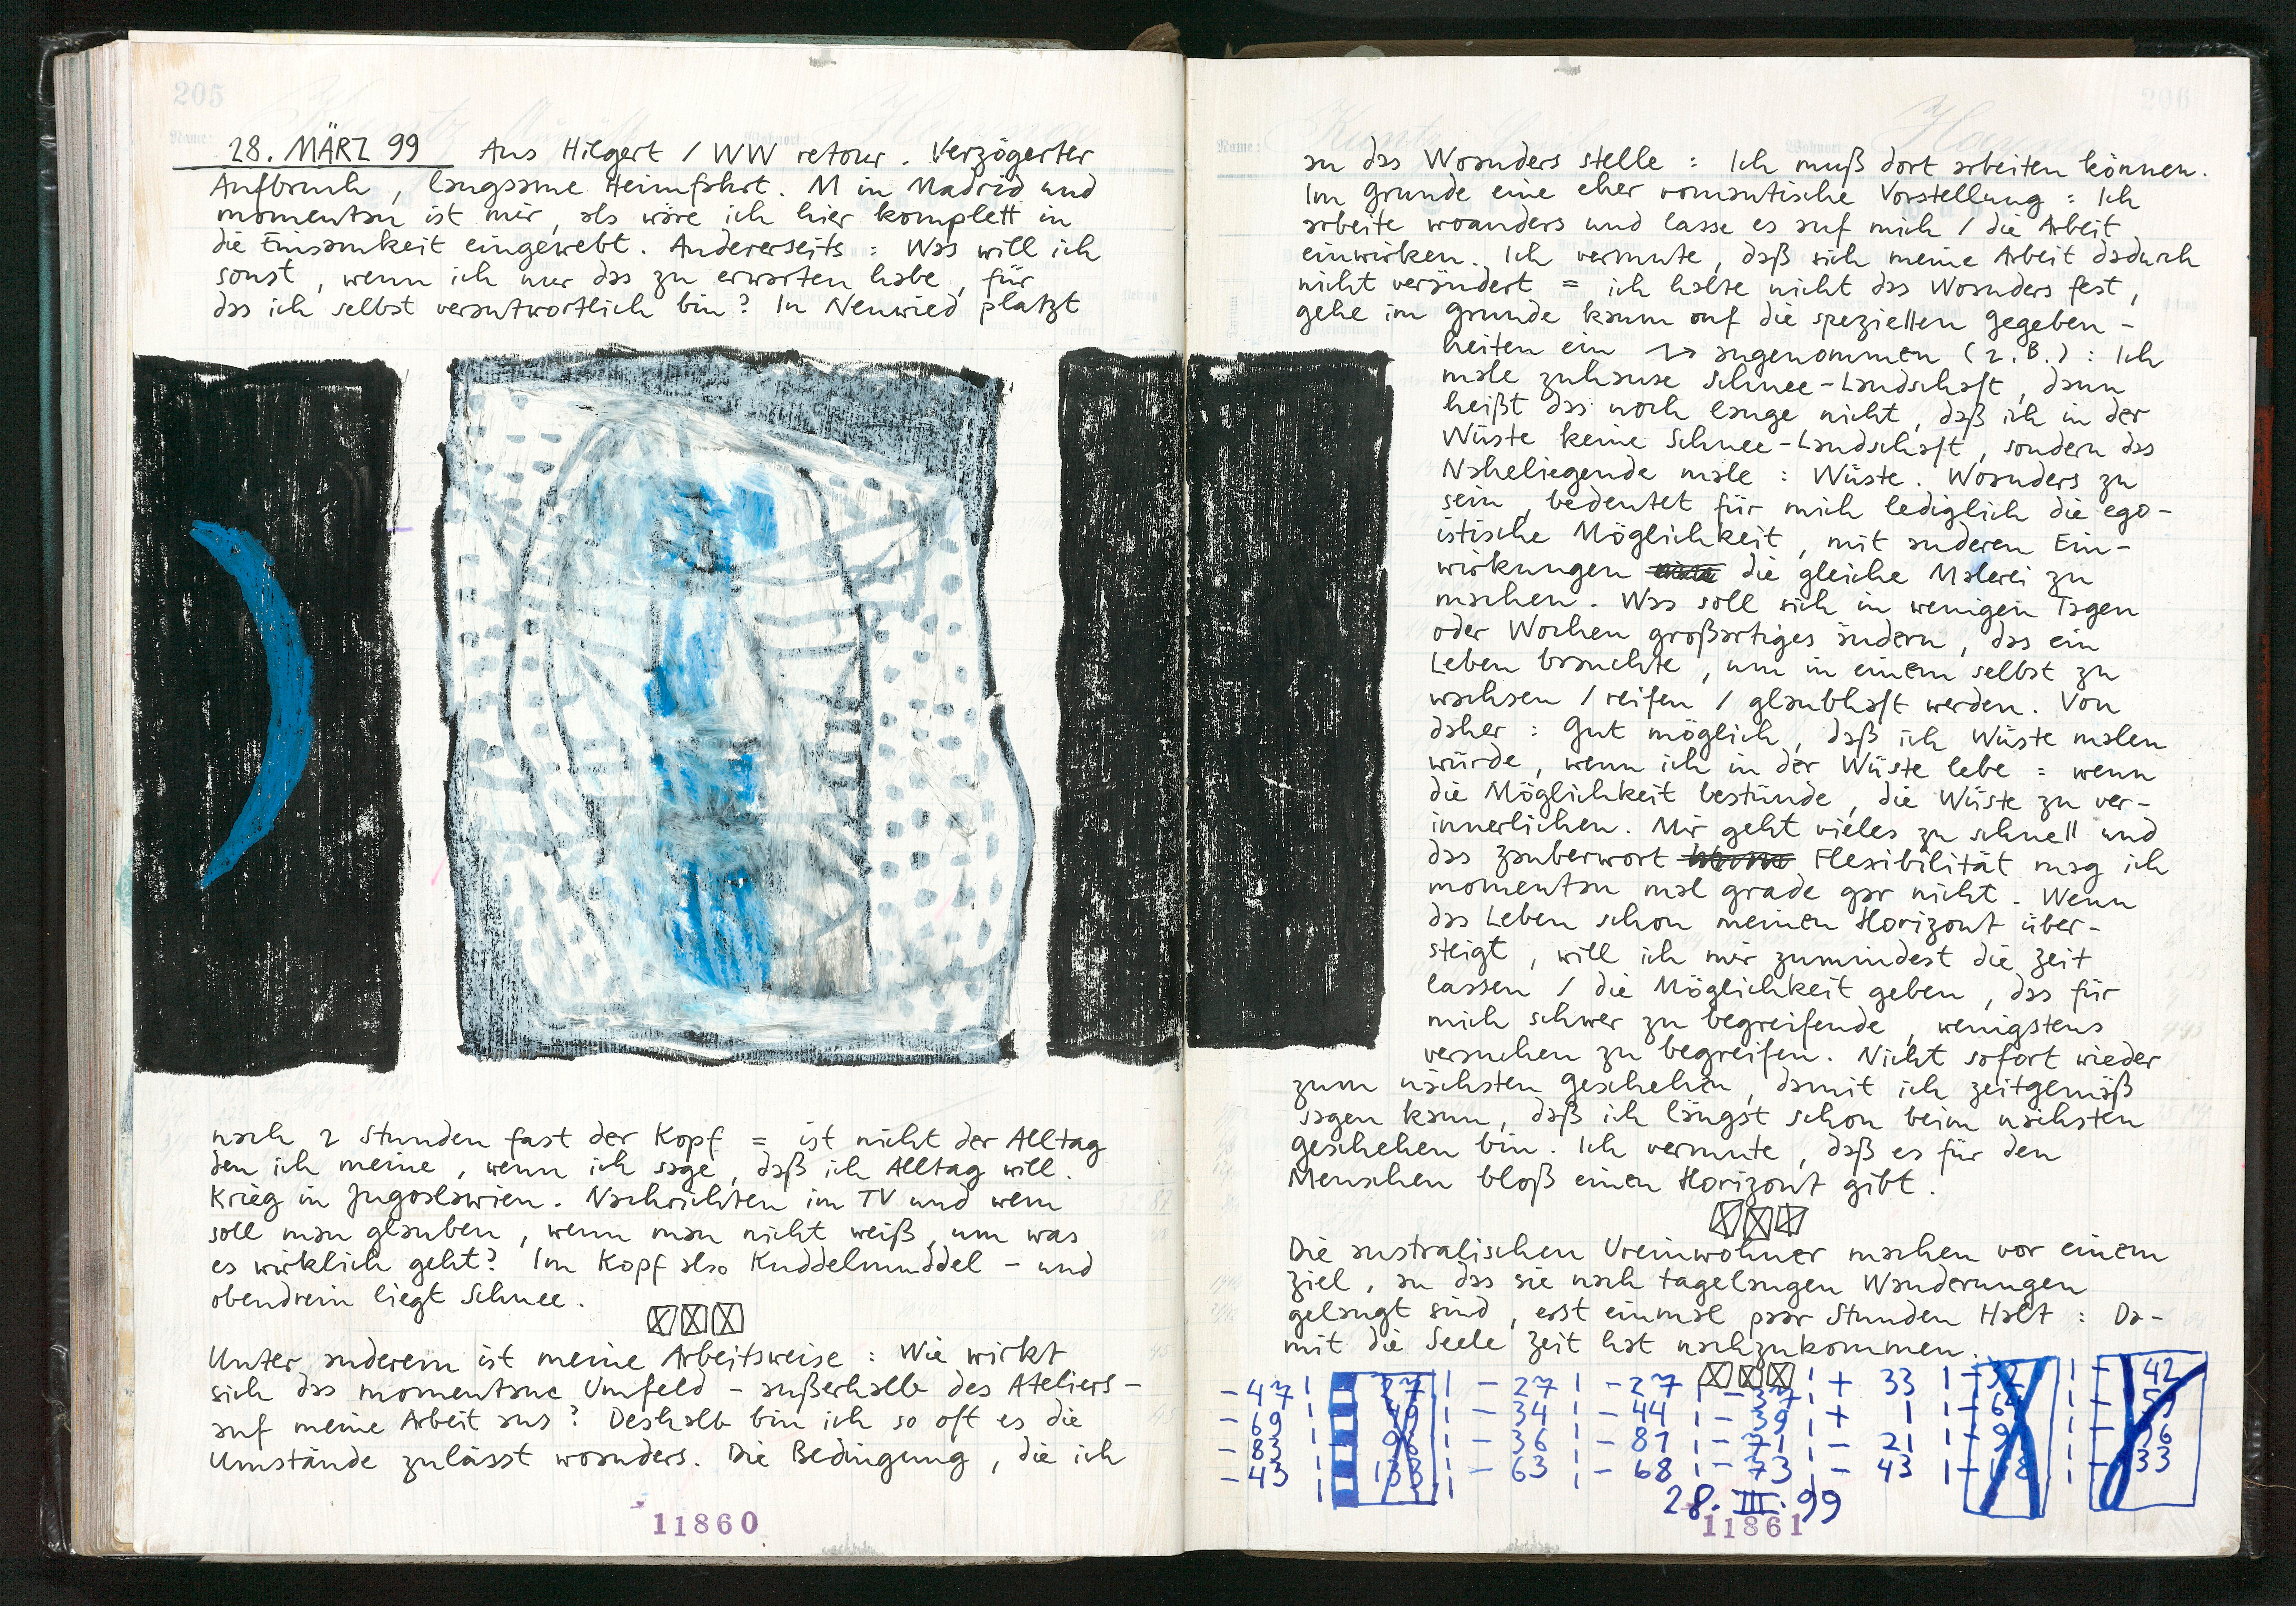 205
28. MÄRZ 99 Aus Hilgert / WW retour. Verzögerter
Aufbruch, langsame Heimfahrt. M in Madrid und
momentan ist mir, als wäre ich hier komplett in
die Einsamkeit eingewebt. Andererseits: Was will ich
sonst, wenn ich nur das zu erwarten habe, für
das ich selbst verantwortlich bin? In Neuwied platzt
nach 2 Stunden fast der Kopf = ist nicht der Alltag
den ich meine, wenn ich sage, daß ich Alltag will.
Krieg in Jugoslawien. Nachrichten im TV und wem
soll man glauben, wenn man nicht weiß, um was
es wirklich geht? Im Kopf also Kuddelmuddel – und
obendrein liegt Schnee.
Unter anderem ist meine Arbeitsweise: Wie wirkt
sich das momentane Umfeld – außerhalb des Ateliers –
auf meine Arbeit aus? Deshalb bin ich so oft es die
Umstände zulässt woanders. Die Bedingung, die ich
11860
206
Name: Kuntz Wohnort:
an das Woanders stelle: Ich muß dort arbeiten können.
Im Grunde eine eher romantische Vorstellung: Ich
arbeite woanders und lasse es auf mich / die Arbeit
einwirken. Ich vermute, daß sich meine Arbeit dadurch
nicht verändert = ich halte nicht das Woanders fest,
gehe im Grunde kaum auf die speziellen Gegeben-
heiten ein → angenommen (z.B.): Ich
male zuhause Schnee-Landschaft, dann
heißt das noch lange nicht, daß ich in der
Wüste keine Schnee-Landschaft, sondern das
Naheliegende male: Wüste. Woanders zu
sein, bedeutet für mich lediglich die ego-
istische Möglichkeit, mit anderen Ein-
wirkungen die gleiche Malerei zu
machen. Was soll sich in wenigen Tagen
oder Wochen großartiges ändern, das ein
Leben brauchte, um in einem selbst zu
wachsen / reifen / glaubhaft werden. Von
daher: Gut möglich, daß ich Wüste malen
würde, wenn ich in der Wüste lebe = wenn
die Möglichkeit bestünde, die Wüste zu ver-
innerlichen. Mir geht vieles zu schnell und
das Zauberwort Flexibilität mag ich
momentan mal grade gar nicht. Wenn
das Leben schon meinen Horizont über-
steigt, will ich mir zumindest die Zeit
lassen / die Möglichkeit geben, das für
mich schwer zu begreifende, wenigstens
versuchen zu begreifen. Nicht sofort wieder
zum nächsten Geschehen, damit ich zeitgemäß
sagen kann, daß ich längst schon beim nächsten
Geschehen bin. Ich vermute, daß es für den
Menschen bloß einen Horizont gibt.
Die australischen Ureinwohner machen vor einem
Ziel, an das sie nach tagelangen Wanderungen
gelangt sind, erst einmal paar Stunden Halt: Da-
mit die Seele Zeit hat nachzukommen.
- 47 27 - 27 - 27 - 37 + 33 - 32 - 42
- 69 - 34 - 44 - 39 + 1 - 64
- 83 - 36 - 81 - 71 - 21
- 43 - 63 - 68 - 73 - 43 - 33
28. III. 99
11861